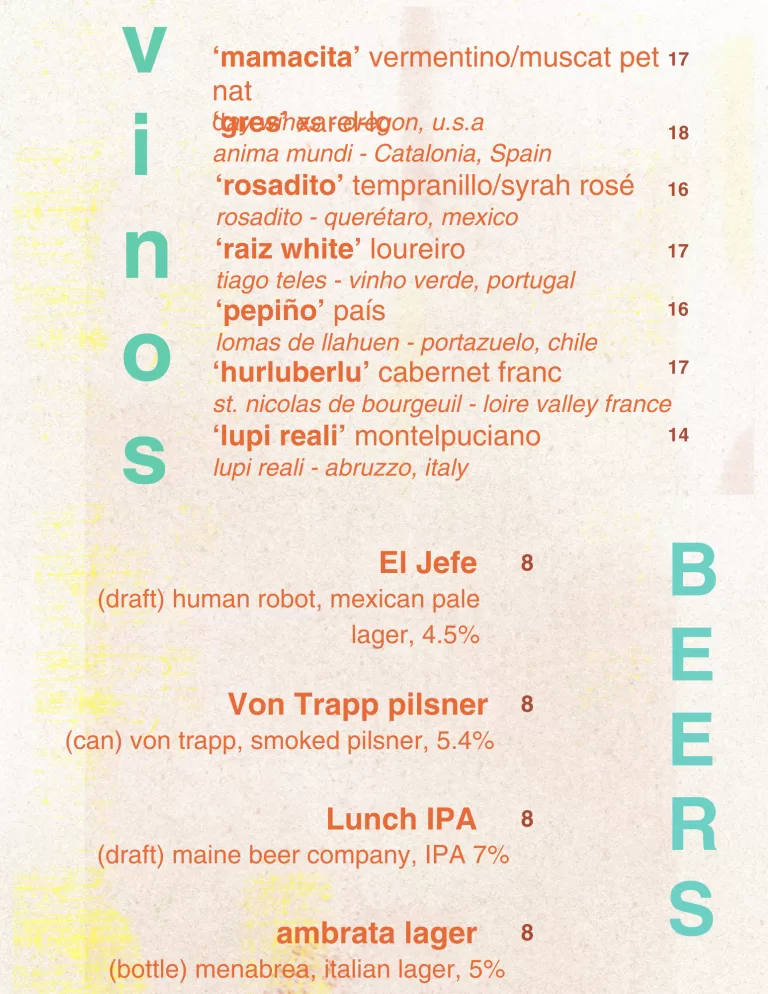 vinos
‘mamacita’ vermentino/muscat pet 17
nat
day wines - oregon, u.s.a
‘gres’ xarel-lo 18
anima mundi - Catalonia, Spain
‘rosadito’ tempranillo/syrah rosé 16
rosadito - querétaro, mexico
‘raiz white’ loureiro 17
tiago teles - vinho verde, portugal
‘pepiño’ país 16
lomas de llahuen - portazuelo, chile
‘hurluberlu’ cabernet franc 17
st. nicolas de bourgeuil - loire valley france
‘lupi reali’ montelpuciano 14
lupi reali - abruzzo, italy
BEERS
El Jefe 8
(draft) human robot, mexican pale
lager, 4.5%
Von Trapp pilsner 8
(can) von trapp, smoked pilsner, 5.4%
Lunch IPA 8
(draft) maine beer company, IPA 7%
ambrata lager 8
(bottle) menabrea, italian lager, 5%